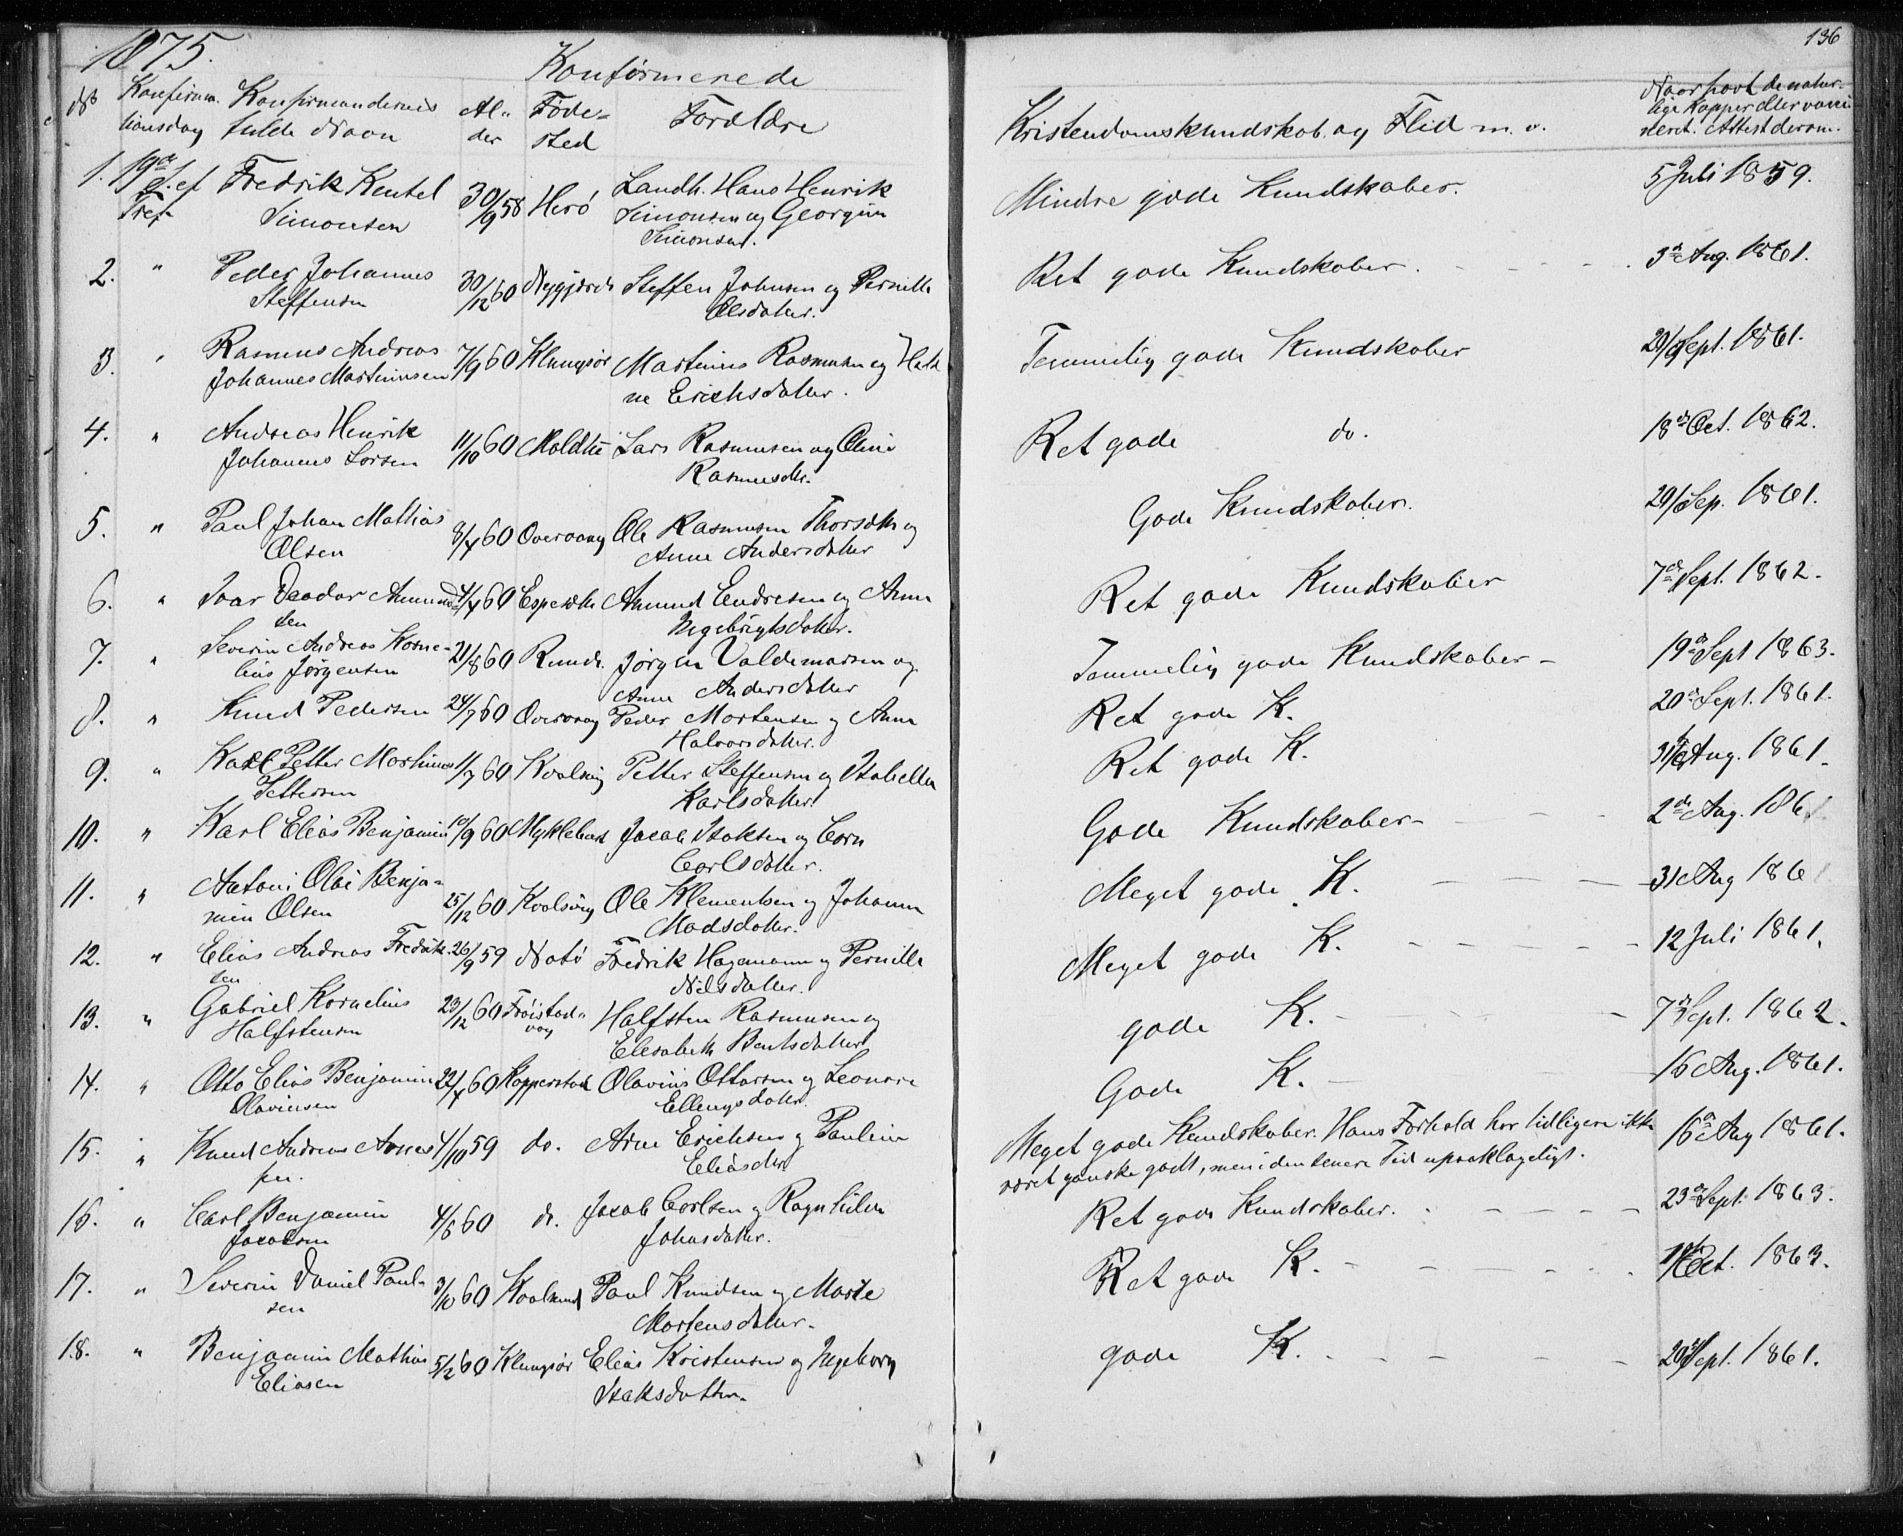 1875.
136
Konfirmerede
No Konfirma- Konfirmandernes Al- Føde- Forældre Kristendomskundskab og Flid m.v. Naar havt de natur-
tionsdag fulde Navn der sted lige Kopper eller vacci-
neret. Attest derom.
1. 19de S. ef Fredrik Kentel 30/9 58 Herö Landh. Hans Henrik Mindre gode Kundskaber. 5 Juli 1859.
Tref. Simonsen Simonsen og Georgine
Simonsen.
2. " Peder Johannes 30/12 60 Nyggjærde Steffen Johnsen og Pernille Ret gode Kundskaber. 3de Aug. 1861.
Steffensen Olsdatter.
3. " Rasmus Andreas 7/9 60 Klungsör Martinus Rasmussen og Hel Temmelig gode Kundskaber 29/ Sept. 1861.
Johannes Martinussen ne Erichsdatter.
4. " Andreas Henrik 11/10 60 Moldtu Lars Rasmussen og Oline Ret gode do. 18de Oct. 1862.
Johannes Larsen Rasmusdtr.
5. " Paul Johan Mathias 8/4 60 Overvaag Ole Rasmusen Thorsæth og Gode Kundskaber. 29/ Sep. 1861.
Olsen Anne Andersdatter
6. " Ivar Teodor Amund- 4/4 60 Espesæth Amund Endresen og Anne Ret gode Kundskaber 7de Sept. 1862.
sen Ingebrigtsdatter.
7. " Severin Andreas Korne- 21/8 60 Runde. Jørgen Valdemarsen og Temmelig gode Kundskaber - 19de Sept 1863.
lius Jørgensen Anne Andersdatter
8. " Knud Pedersen 24/7 60 Overvaag Peder Mortensen og Anne Ret gode K. 20de Sept. 1861.
Halvorsdatter.
9. " Karl Petter Martinus 11/7 60 Kvalsvig Petter Steffensen og Isabella Ret gode K. 31 Aug. 1861.
Pettersen Karlsdatter.
10. " Karl Elias Benjamin 10/9 60 Myklebust Jacob Isaksen og Corn Gode Kundskaber - 2de Aug. 1861
Carlsdatter.
11. " Antoni Olai Benja- 25/12 60 Kvalsvig Ole Klementsen og Johanne Meget gode K. 31 Aug 1861
min Olsen Madsdatter.
12. " Elias Andreas Fredrik- 26/9 59 Notö Fredrik Hagemann og Pernille Meget gode K. 12 Juli 1861.
sen Nilsdatter.
13. " Gabriel Kornelius 23/12 60 Frøistad- Halfsten Rasmusen og gode K. - 7de Sept. 1862.
Halfstensen vaag Elesabeth Bentsdatter
14. " Otto Elias Benjamin 22/4 60 Kopperstad Olavius Ottosen og Leonore Gode K. - 16 Aug. 1861.
Olaviusen Ellengsdatter.
15. " Knud Andreas Arne- 4/10 59 do. Arne Erichsen og Pauline Meget gode Kundskaber. Hans Forhold har tidligere ikke 16de Aug 1861.
sen. Eliasdtr været ganske godt, men i den senere Tid upaaklageligt.
16. " Carl Benjamin 4/5 60 do. Jacob Carlsen og Ragnhilde Ret gode Kundskaber. 23de Sept. 1863.
Jacobsen Johnsdatter.
17. " Severin Daniel Paul- 3/10 60 Kvalsund Paul Knudsen og Marte Ret gode K. - Oct. 1863.
sen Mortensdatter.
18. " Benjamin Mathias 5/12 60 Klungsör Elias Kristensen og Ingeborg gode K. 29 Sept. 1861.
Eliasen Isaksdatter.